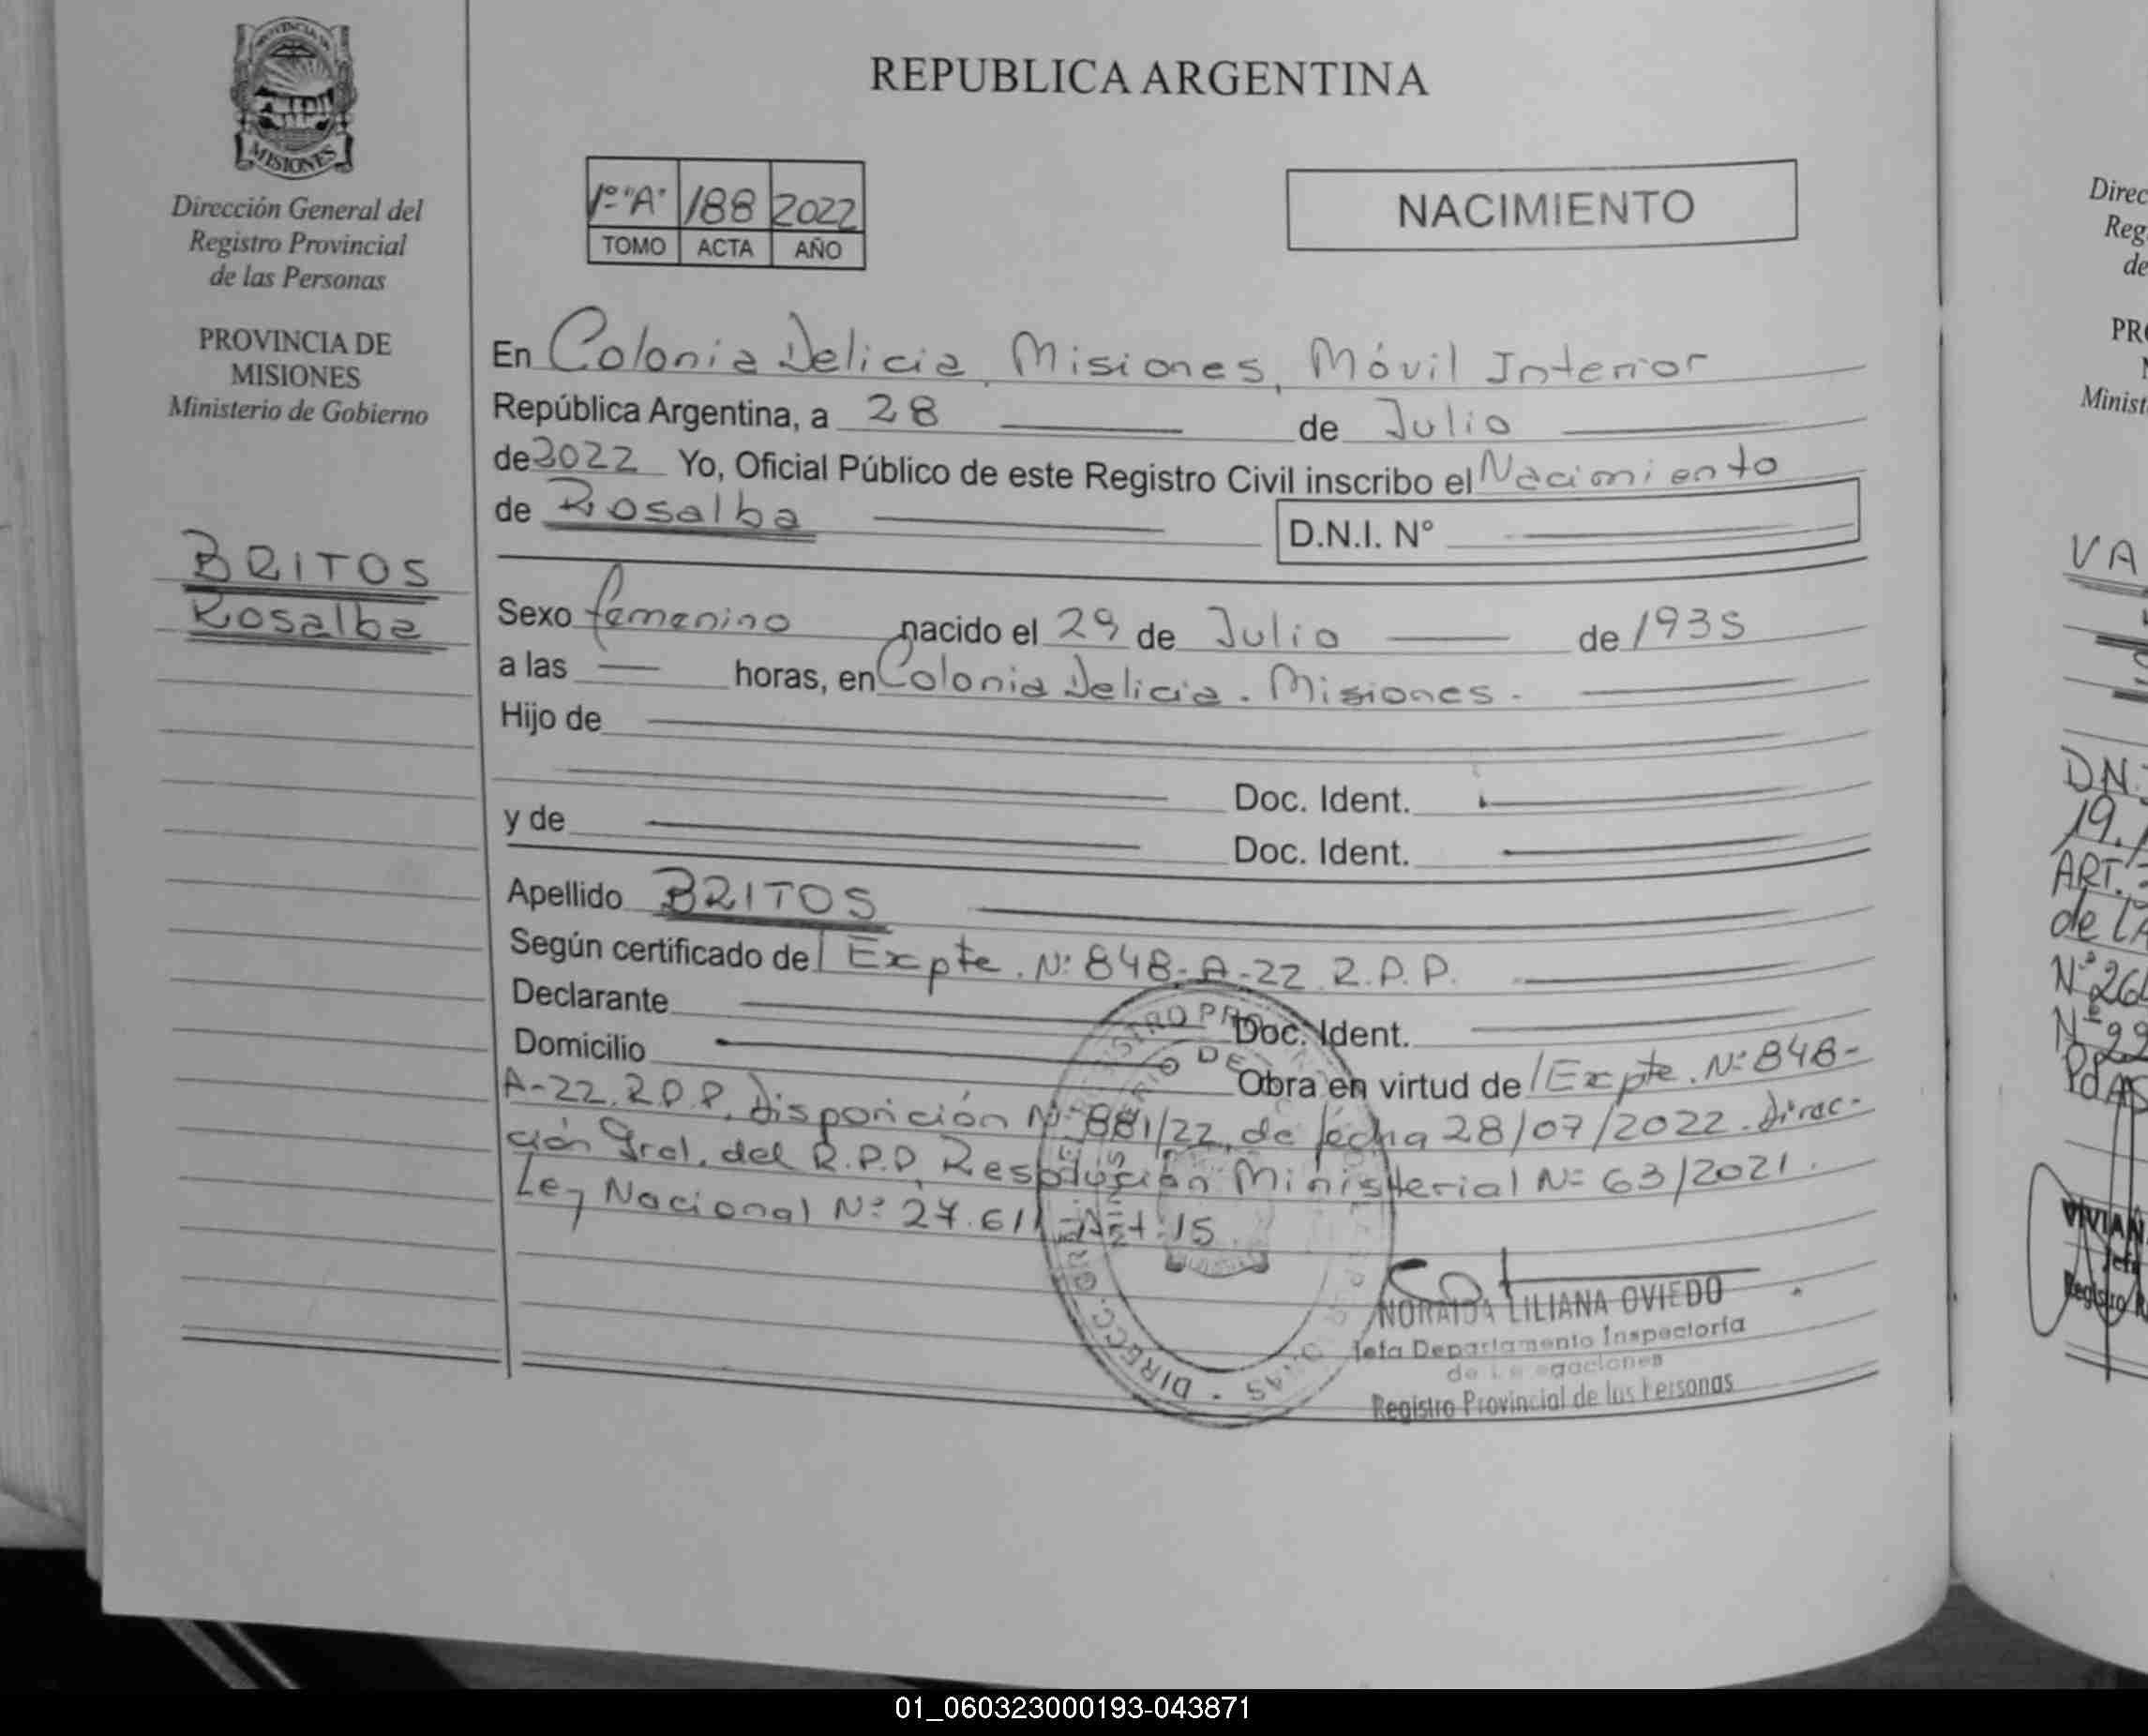 REPUBLICA ARGENTINA
MISIONES
Dirección General del
Registro Provincial
de las Personas
PROVINCIA DE
MISIONES
Ministerio de Gobierno
BRITOS
Rosalba
1º "A" 188 2022
TOMO ACTA AÑO
NACIMIENTO
En Colonia Delicia, Misiones, Móvil Interior
República Argentina, a 28 de Julio
de 2022 Yo, Oficial Público de este Registro Civil inscribo el Nacimiento
de Rosalba D.N.I. Nº
Sexo femenino nacido el 29 de Julio de 1935
a las horas, en Colonia Delicia. Misiones.
Hijo de
Doc. Ident.
y de
Doc. Ident.
Apellido BRITOS
Según certificado del Expte. Nº 848-A-22 R.P.P.
Declarante Doc. Ident.
Domicilio
Obra en virtud del Expte. Nº 848-
A-22. R.P.P. Disposición Nº 881/22, de fecha 28/07/2022. Direc-
ción Gral. del R.P.P, Resolución Ministerial Nº 63/2021.
Ley Nacional Nº 27.611 - Art. 15
NORAIDA LILIANA OVIEDO
Jefa Departamento Inspectoría
de
Registro Provincial de las Personas
Direc
Reg
de
PR
Minist
VA
DN
19.
ART.
de
Nº 26
Nº
VIVIAN
Jef
Registro
01_060323000193-043871